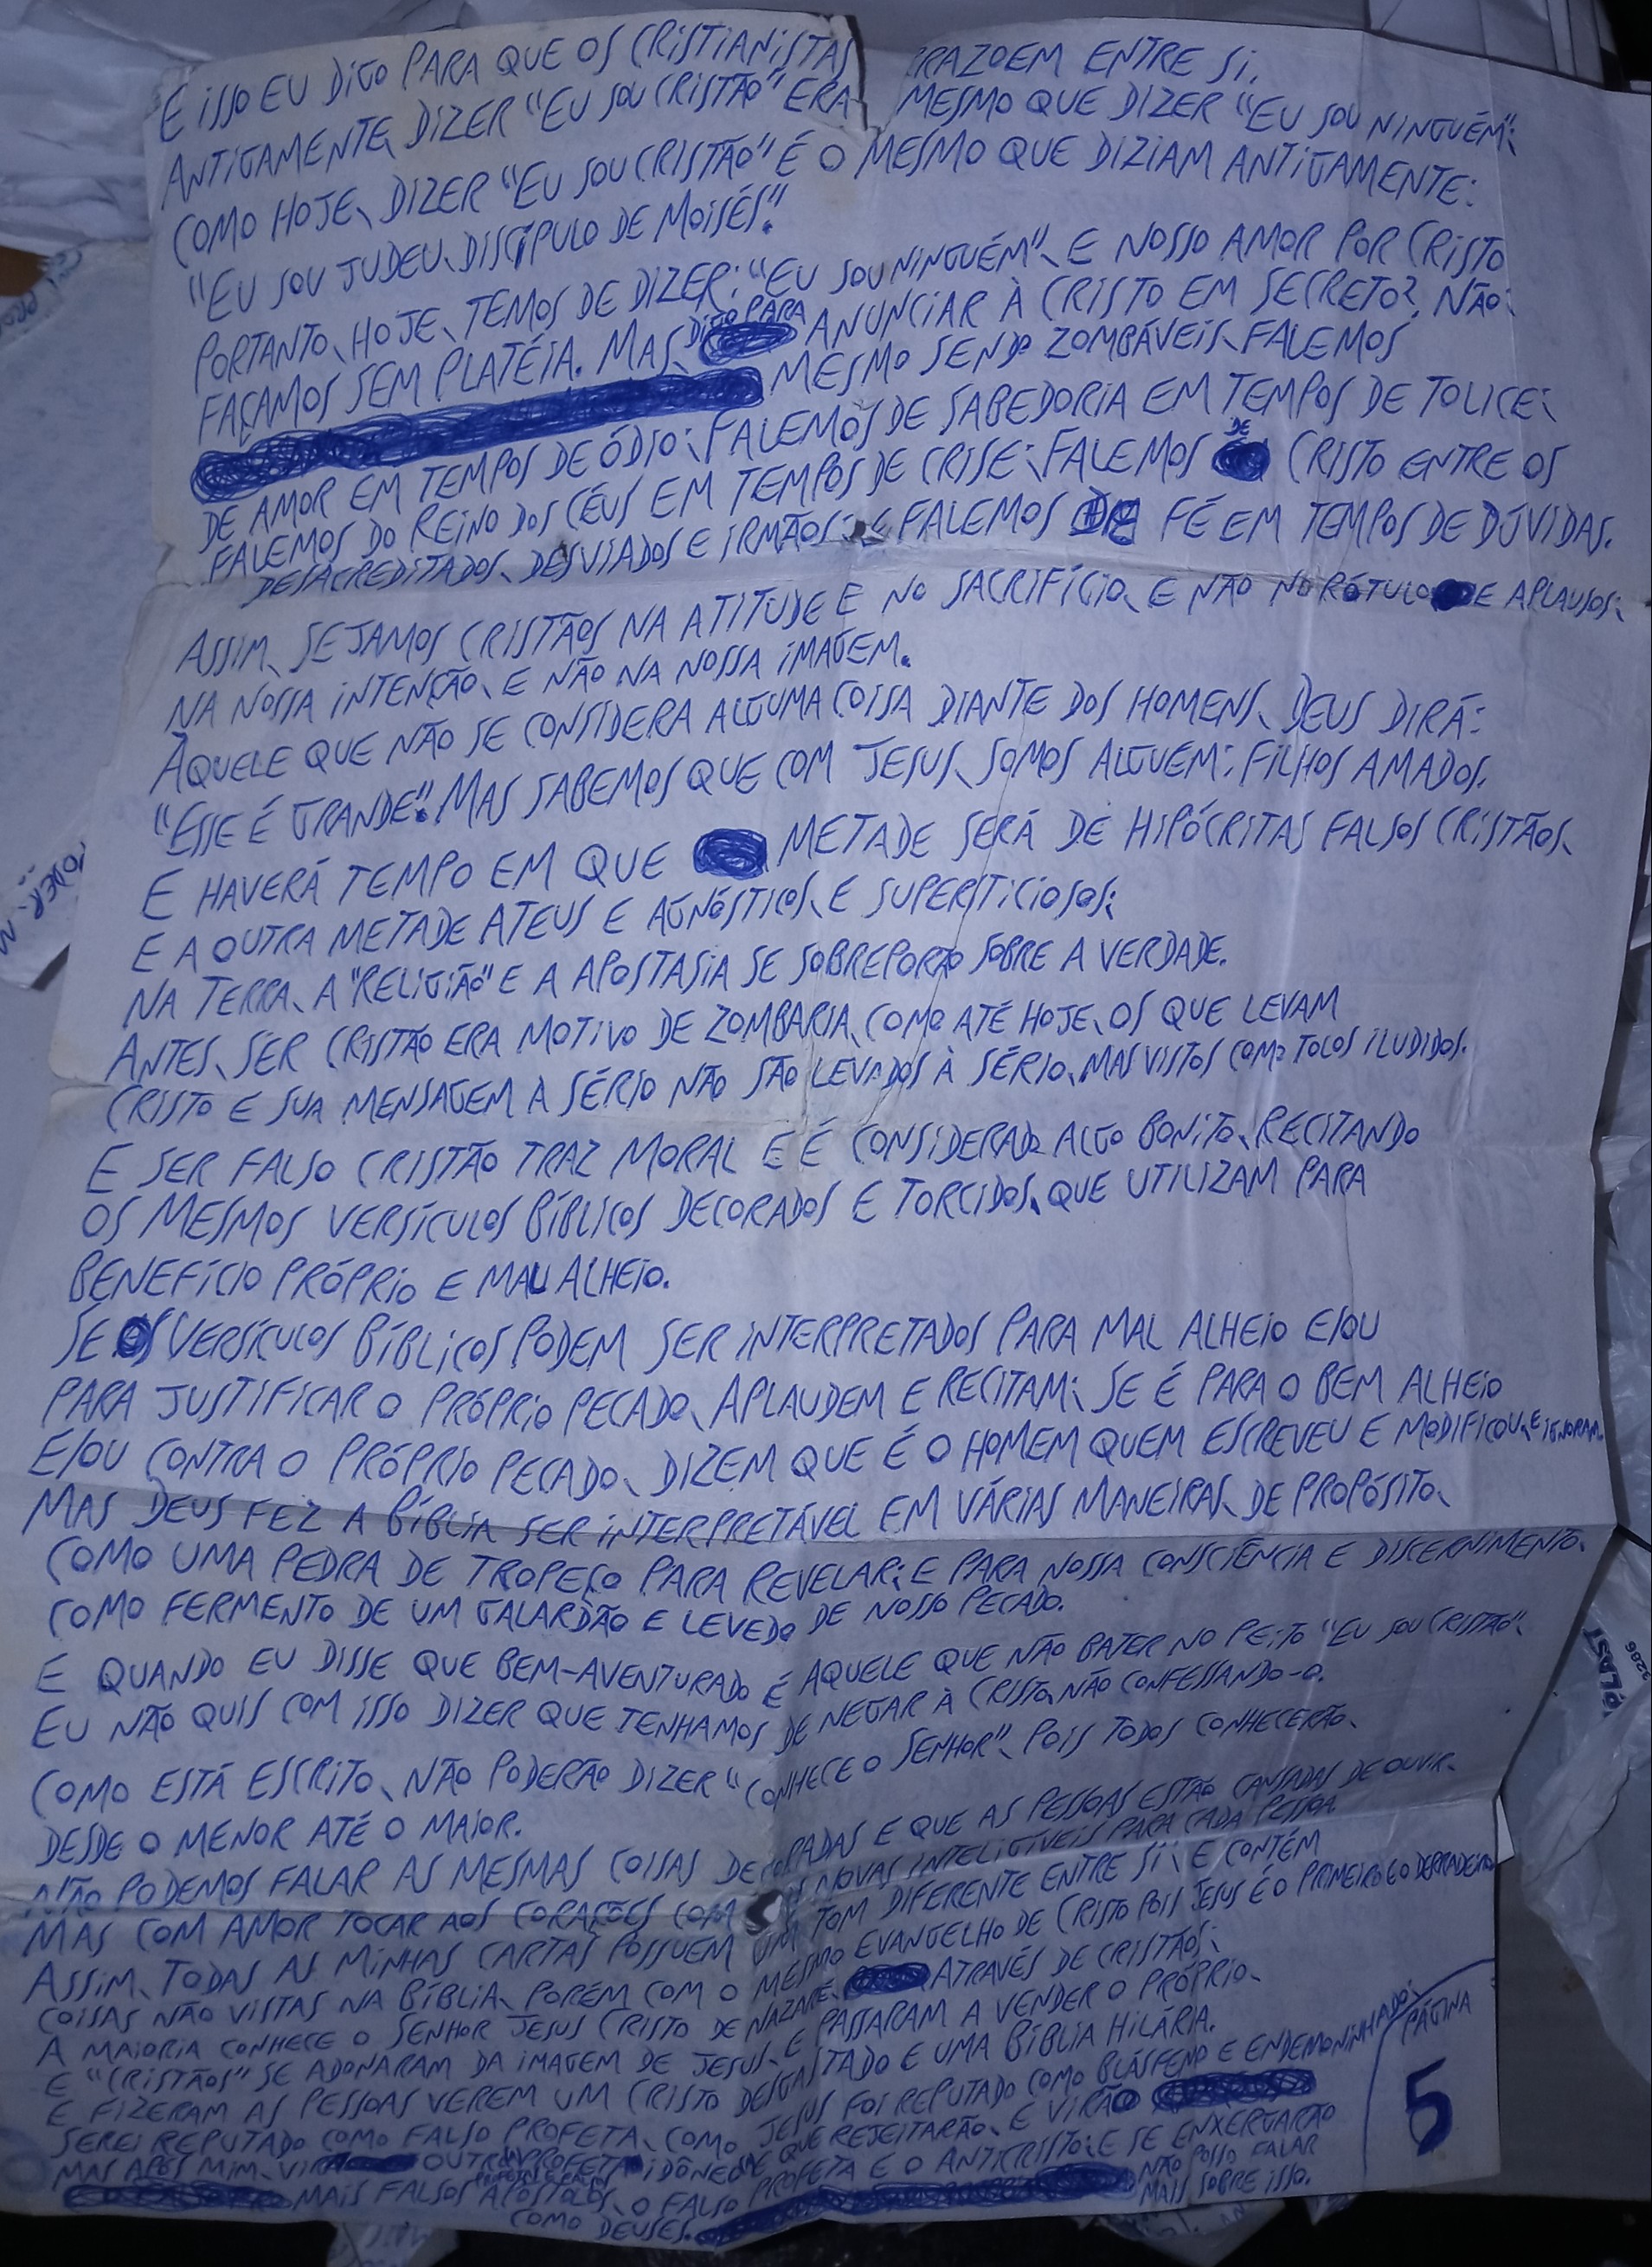 E ISSO EU DIGO PARA QUE OS CRISTIANISTAS RAZOEM ENTRE SI,
ANTIGAMENTE, DIZER "EU SOU CRISTÃO" ERA MESMO QUE DIZER "EU SOU NINGUÉM";
COMO HOJE, DIZER "EU SOU CRISTÃO" É O MESMO QUE DIZIAM ANTIGAMENTE:
"EU SOU JUDEU, DISCÍPULO DE MOISÉS".
PORTANTO, HOJE, TEMOS DE DIZER: "EU SOU NINGUÉM", E NOSSO AMOR POR CRISTO
FAÇAMOS SEM PLATÉIA. MAS, DIGO PARA ANUNCIAR À CRISTO EM SECRETO?, NÃO;
MESMO SENDO ZOMBÁVEIS, FALEMOS
DE AMOR EM TEMPOS DE ÓDIO; FALEMOS DE SABEDORIA EM TEMPOS DE TOLICE;
FALEMOS DO REINO DOS CÉUS EM TEMPOS DE CRISE; FALEMOS DE CRISTO ENTRE OS
DESACREDITADOS, DESVIADOS E IRMÃOS; E FALEMOS DE FÉ EM TEMPOS DE DÚVIDAS.
ASSIM, SEJAMOS CRISTÃOS NA ATITUDE E NO SACRIFÍCIO, E NÃO NO RÓTULO E APLAUSOS;
NA NOSSA INTENÇÃO, E NÃO NA NOSSA IMAGEM.
ÀQUELE QUE NÃO SE CONSIDERA ALGUMA COISA DIANTE DOS HOMENS, DEUS DIRÁ:
"ESSE É GRANDE". MAS SABEMOS QUE COM JESUS, SOMOS ALGUÉM; FILHOS AMADOS.
E HAVERÁ TEMPO EM QUE METADE SERÁ DE HIPÓCRITAS FALSOS CRISTÃOS,
E A OUTRA METADE ATEUS E AGNÓSTICOS, E SUPERSTICIOSOS;
NA TERRA, A "RELIGIÃO" E A APOSTASIA SE SOBREPORÃO SOBRE A VERDADE.
ANTES, SER CRISTÃO ERA MOTIVO DE ZOMBARIA, COMO ATÉ HOJE, OS QUE LEVAM
CRISTO E SUA MENSAGEM A SÉRIO NÃO SÃO LEVADOS À SÉRIO, MAS VISTOS COMO TOLOS ILUDIDOS.
E SER FALSO CRISTÃO TRAZ MORAL E É CONSIDERADO ALGO BONITO, RECITANDO
OS MESMOS VERSÍCULOS BÍBLICOS DECORADOS E TORCIDOS, QUE UTILIZAM PARA
BENEFÍCIO PRÓPRIO E MAL ALHEIO.
SE OS VERSÍCULOS BÍBLICOS PODEM SER INTERPRETADOS PARA MAL ALHEIO E/OU
PARA JUSTIFICAR O PRÓPRIO PECADO, APLAUDEM E RECITAM; SE É PARA O BEM ALHEIO
E/OU CONTRA O PRÓPRIO PECADO, DIZEM QUE É O HOMEM QUEM ESCREVEU E MODIFICOU, E IGNORAM.
MAS DEUS FEZ A BÍBLIA SER INTERPRETÁVEL EM VÁRIAS MANEIRAS, DE PROPÓSITO,
COMO UMA PEDRA DE TROPEÇO PARA REVELAR; E PARA NOSSA CONSCIÊNCIA E DISCERNIMENTO,
COMO FERMENTO DE UM GALARDÃO E LEVEDO DE NOSSO PECADO.
E QUANDO EU DISSE QUE BEM-AVENTURADO É AQUELE QUE NÃO BATER NO PEITO "EU SOU CRISTÃO",
EU NÃO QUIS COM ISSO DIZER QUE TENHAMOS DE NEGAR À CRISTO, NÃO CONFESSANDO-O.
COMO ESTÁ ESCRITO, NÃO PODERÃO DIZER "CONHECE O SENHOR", POIS TODOS CONHECERÃO,
DESDE O MENOR ATÉ O MAIOR.
NÃO PODEMOS FALAR AS MESMAS COISAS DECORADAS E QUE AS PESSOAS ESTÃO CANSADAS DE OUVIR.
MAS COM AMOR TOCAR AOS CORAÇÕES COM NOVAS INTELIGÍVEIS PARA CADA PESSOA
ASSIM, TODAS AS MINHAS CARTAS POSSUEM UM TOM DIFERENTE ENTRE SI; E CONTÉM
COISAS NÃO VISTAS NA BÍBLIA, PORÉM COM O MESMO EVANGELHO DE CRISTO POIS JESUS É O PRIMEIRO E O DERRADEIRO
A MAIORIA CONHECE O SENHOR JESUS CRISTO DE NAZARÉ, ATRAVÉS DE CRISTÃOS;
E "CRISTÃOS" SE ADONARAM DA IMAGEM DE JESUS, E PASSARAM A VENDER O PRÓPRIO,
E FIZERAM AS PESSOAS VEREM UM CRISTO DESGASTADO E UMA BÍBLIA HILÁRIA.
SEREI REPUTADO COMO FALSO PROFETA, COMO JESUS FOI REPUTADO COMO BLÁSFEMO E ENDEMONINHADO;
MAS APÓS MIM, VIRÁ OUTRO PROFETA IDÔNEO QUE REJEITARÃO, E VIRÃO
MAIS FALSOS PROFETAS APÓSTOLOS, O FALSO PROFETA E O ANTICRISTO; E SE ENXERGARÃO
COMO DEUSES.
NÃO POSSO FALAR
MAIS SOBRE ISSO.
PÁGINA
5
PLAST
3286